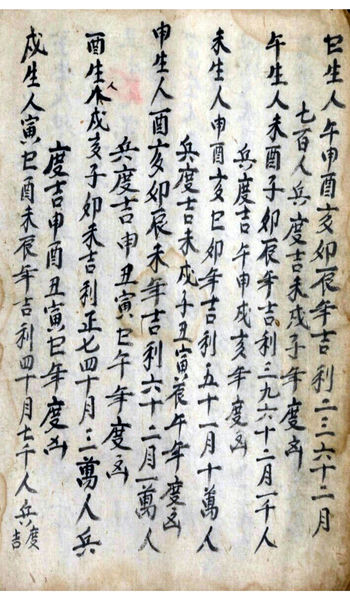 巳生人午申酉亥卯辰年吉利二三六十二月
七百人兵度吉未戌子年度凶
午生人未酉子卯辰年吉利三九六十二月一千人
兵度吉午申戌亥年度凶
未生人申酉亥巳卯年吉利五十一月十萬人
兵度吉未戌子丑寅辰午年度凶
申生人酉亥卯辰未年吉利六十二月一萬人
兵度吉申丑寅巳午年度凶
酉生人戌亥子卯未吉利正七四十月二萬人兵
度吉申酉丑寅巳年度凶
戌生人寅巳酉未辰年吉利四十月七千人兵度吉